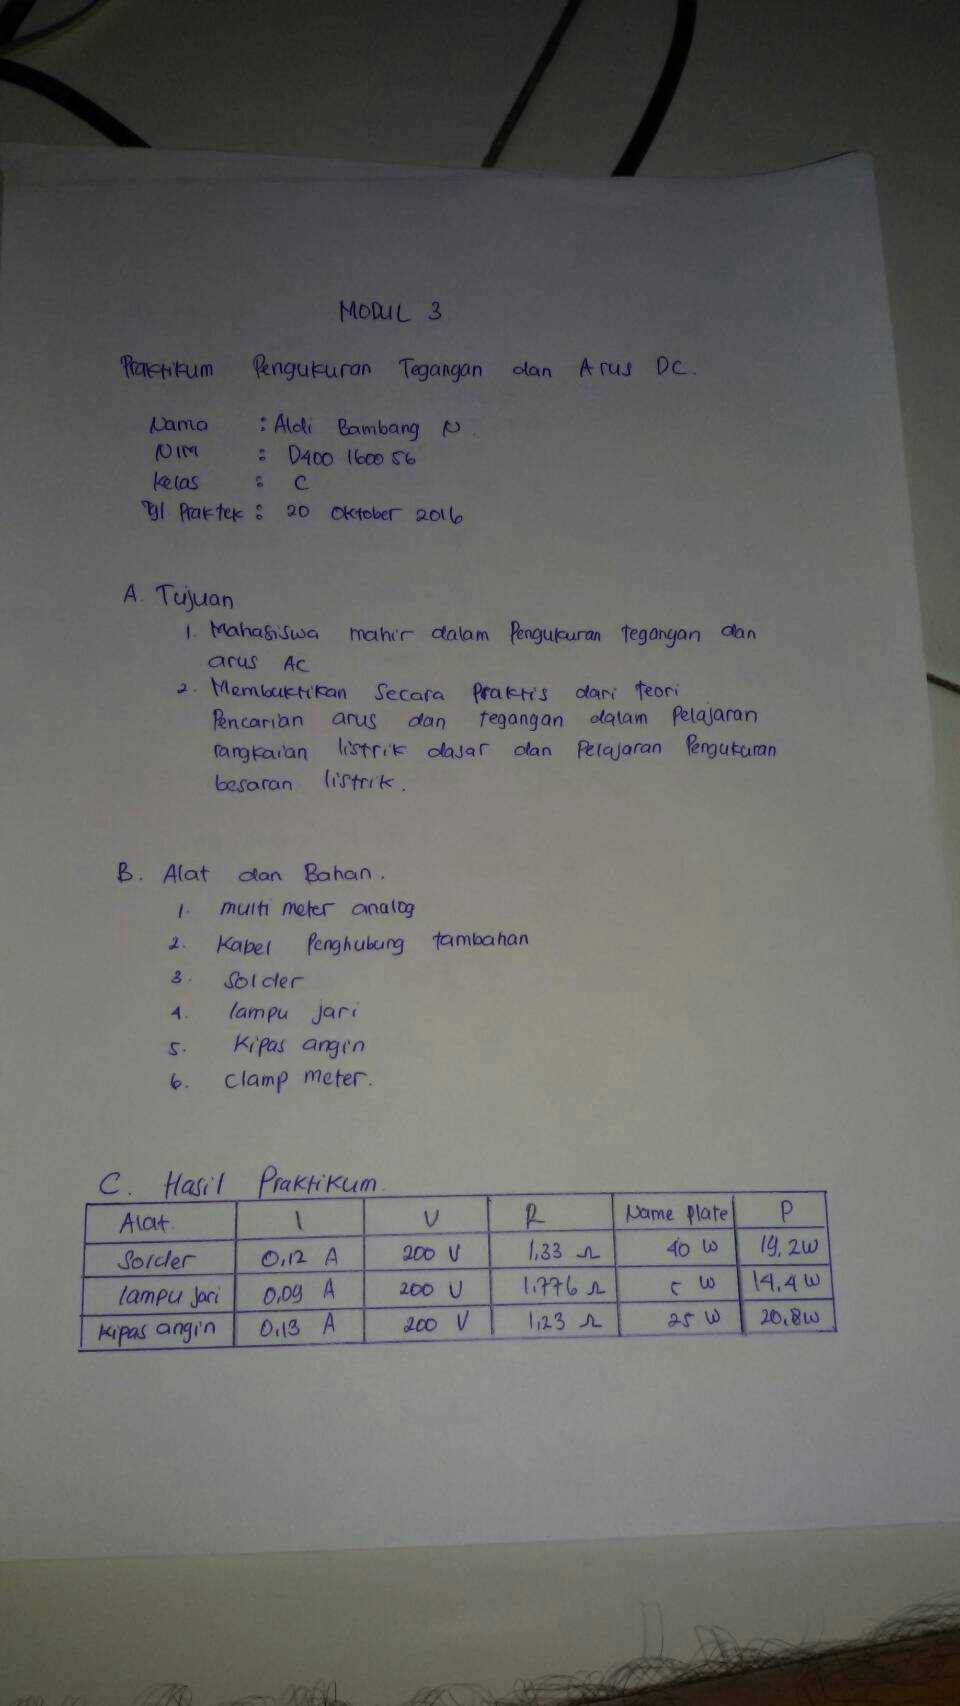 MODUL 3
Praktikum Pengukuran Tegangan dan Arus DC.
Nama : Aldi Bambang N
NIM : D400 1600 56
Kelas : C
Tgl Praktek : 20 Oktober 2016
A. Tujuan
1. Mahasiswa mahir dalam Pengukuran tegangan dan
arus AC
2. Membuktikan Secara Praktis dari teori
Pencarian arus dan tegangan dalam Pelajaran
rangkaian listrik dasar dan Pelajaran Pengukuran
besaran listrik.
B. Alat dan Bahan.
1. multi meter analog
2. Kabel Penghubung tambahan
3. Solder
4. lampu jari
5. Kipas angin
6. Clamp meter.
C. Hasil Praktikum.
Alat. I V R Name Plate P
Solder 0,12 A 200 V 1,33 Ω 40 W 19,2W
lampu jari 0,09 A 200 V 1,776 Ω 5 W 14,4 W
Kipas angin 0,13 A 200 V 1,23 Ω 25 W 20,8W